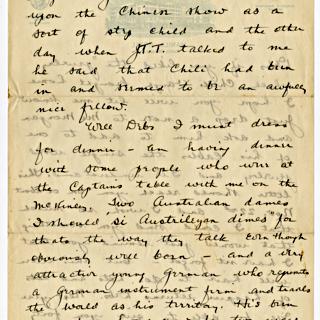 upon the Chinese show as a
sort of step child and the other
day when J.T. talked to me
he said that Chili had been
in and seemed to be an awfully
nice fellow.
Well Debs I must dress
for dinner - am having dinner
with some people who were at
the Captains table with me on the
McKinley. Two Australian dames
I should si "Austrileyan dimes" for
thats the way they talk even though
obviously well born - and a very
attractive young German who represents
a German instrument firm and travels
the world as his territory. He's been